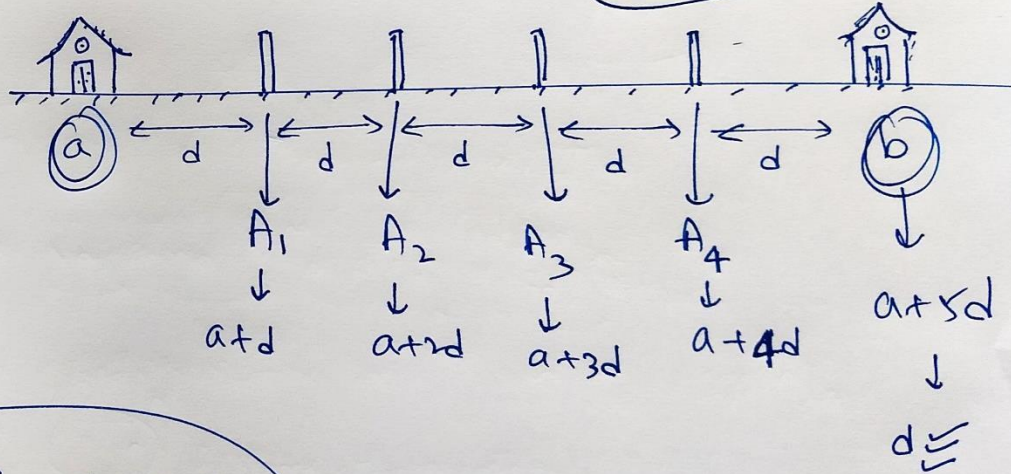 a d d d d d b
A₁ A₂ A₃ A₄
↓ ↓ ↓ ↓ ↓
a+d a+2d a+3d a+4d a+5d
↓
d